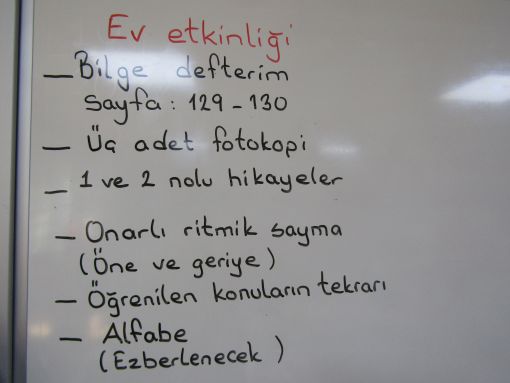 Ev etkinliği
– Bilge defterim
Sayfa : 129 - 130
– Üç adet fotokopi
– 1 ve 2 nolu hikayeler
– Onarlı ritmik sayma
(Öne ve geriye)
– Öğrenilen konuların tekrarı
– Alfabe
(Ezberlenecek)